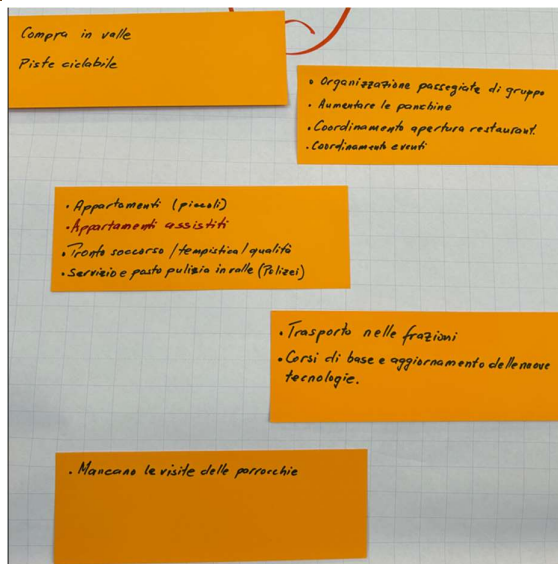 Compra in valle
Piste ciclabile
• Organizzazione passegiate di gruppo
• Aumentare le panchine
• Coordinamento apertura restaurant.
• Coordinamento eventi
• Appartamenti (piccoli)
• Appartamenti assistiti
• Pronto soccorso / tempistica / qualità
• Servizio e posto pulizia in valle (Polizei)
• Trasporto nelle frazioni
• Corsi di base e aggiornamento delle nuove
tecnologie.
• Mancano le visite delle parrocchie